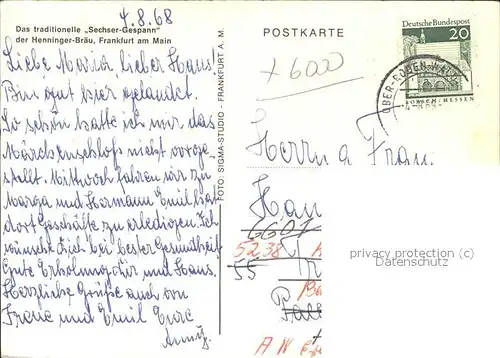 4.8.68
Das traditionelle „Sechser-Gespann"
der Henninger-Bräu, Frankfurt am Main
Liebe Maria lieber Hans!
Bin gut hier gelandet.
So schön hatte ich mir das
Märchenschloß nicht vorge-
stellt. Mittwoch fahren wir zu
Marga und Hermann Emil hat
dort Geschäfte zu erledigen. Ich
wünsche Dich bei bester Gesundheit
Gute Erholung für und Hans.
Herzliche Grüße auch von
und Emil Eure
Anny.
FOTO: SIGMA-STUDIO - FRANKFURT A. M.
POSTKARTE
+ 6000
Deutsche Bundespost
20
LORSCH/HESSEN
OBER-RODEN
Herrn u Frau
Han
6601
5238
55
privacy protection (c)
Datenschutz